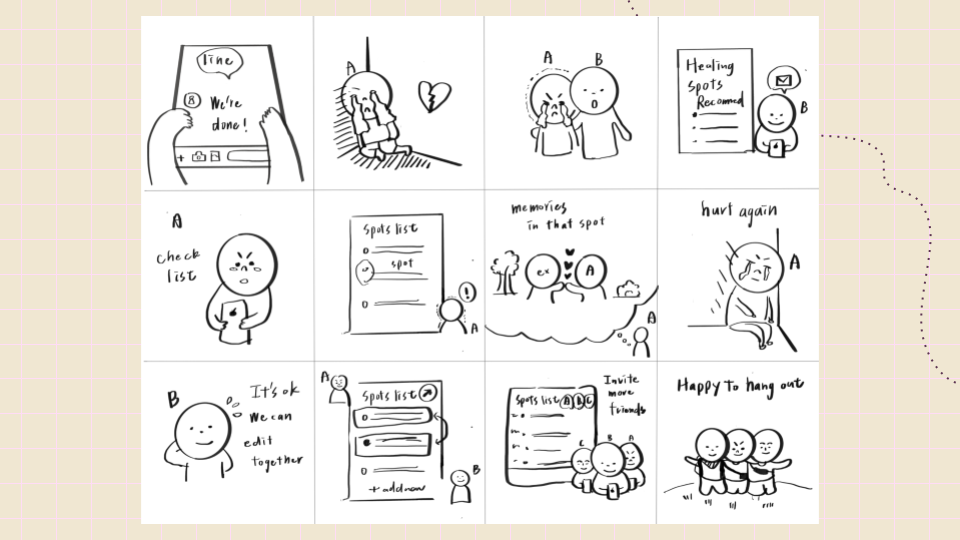 line
8 We're
done!
+
A
A
B
Healing
spots
Recommed
B
A
check
list
spots list
spot
!
A
memories
in that spot
ex
A
A
hurt again
A
B
It's ok
We can
edit
together
A
spots list
B
+ add now
Invite
more
friends
spots list A B C
C
B
A
Happy to hang out